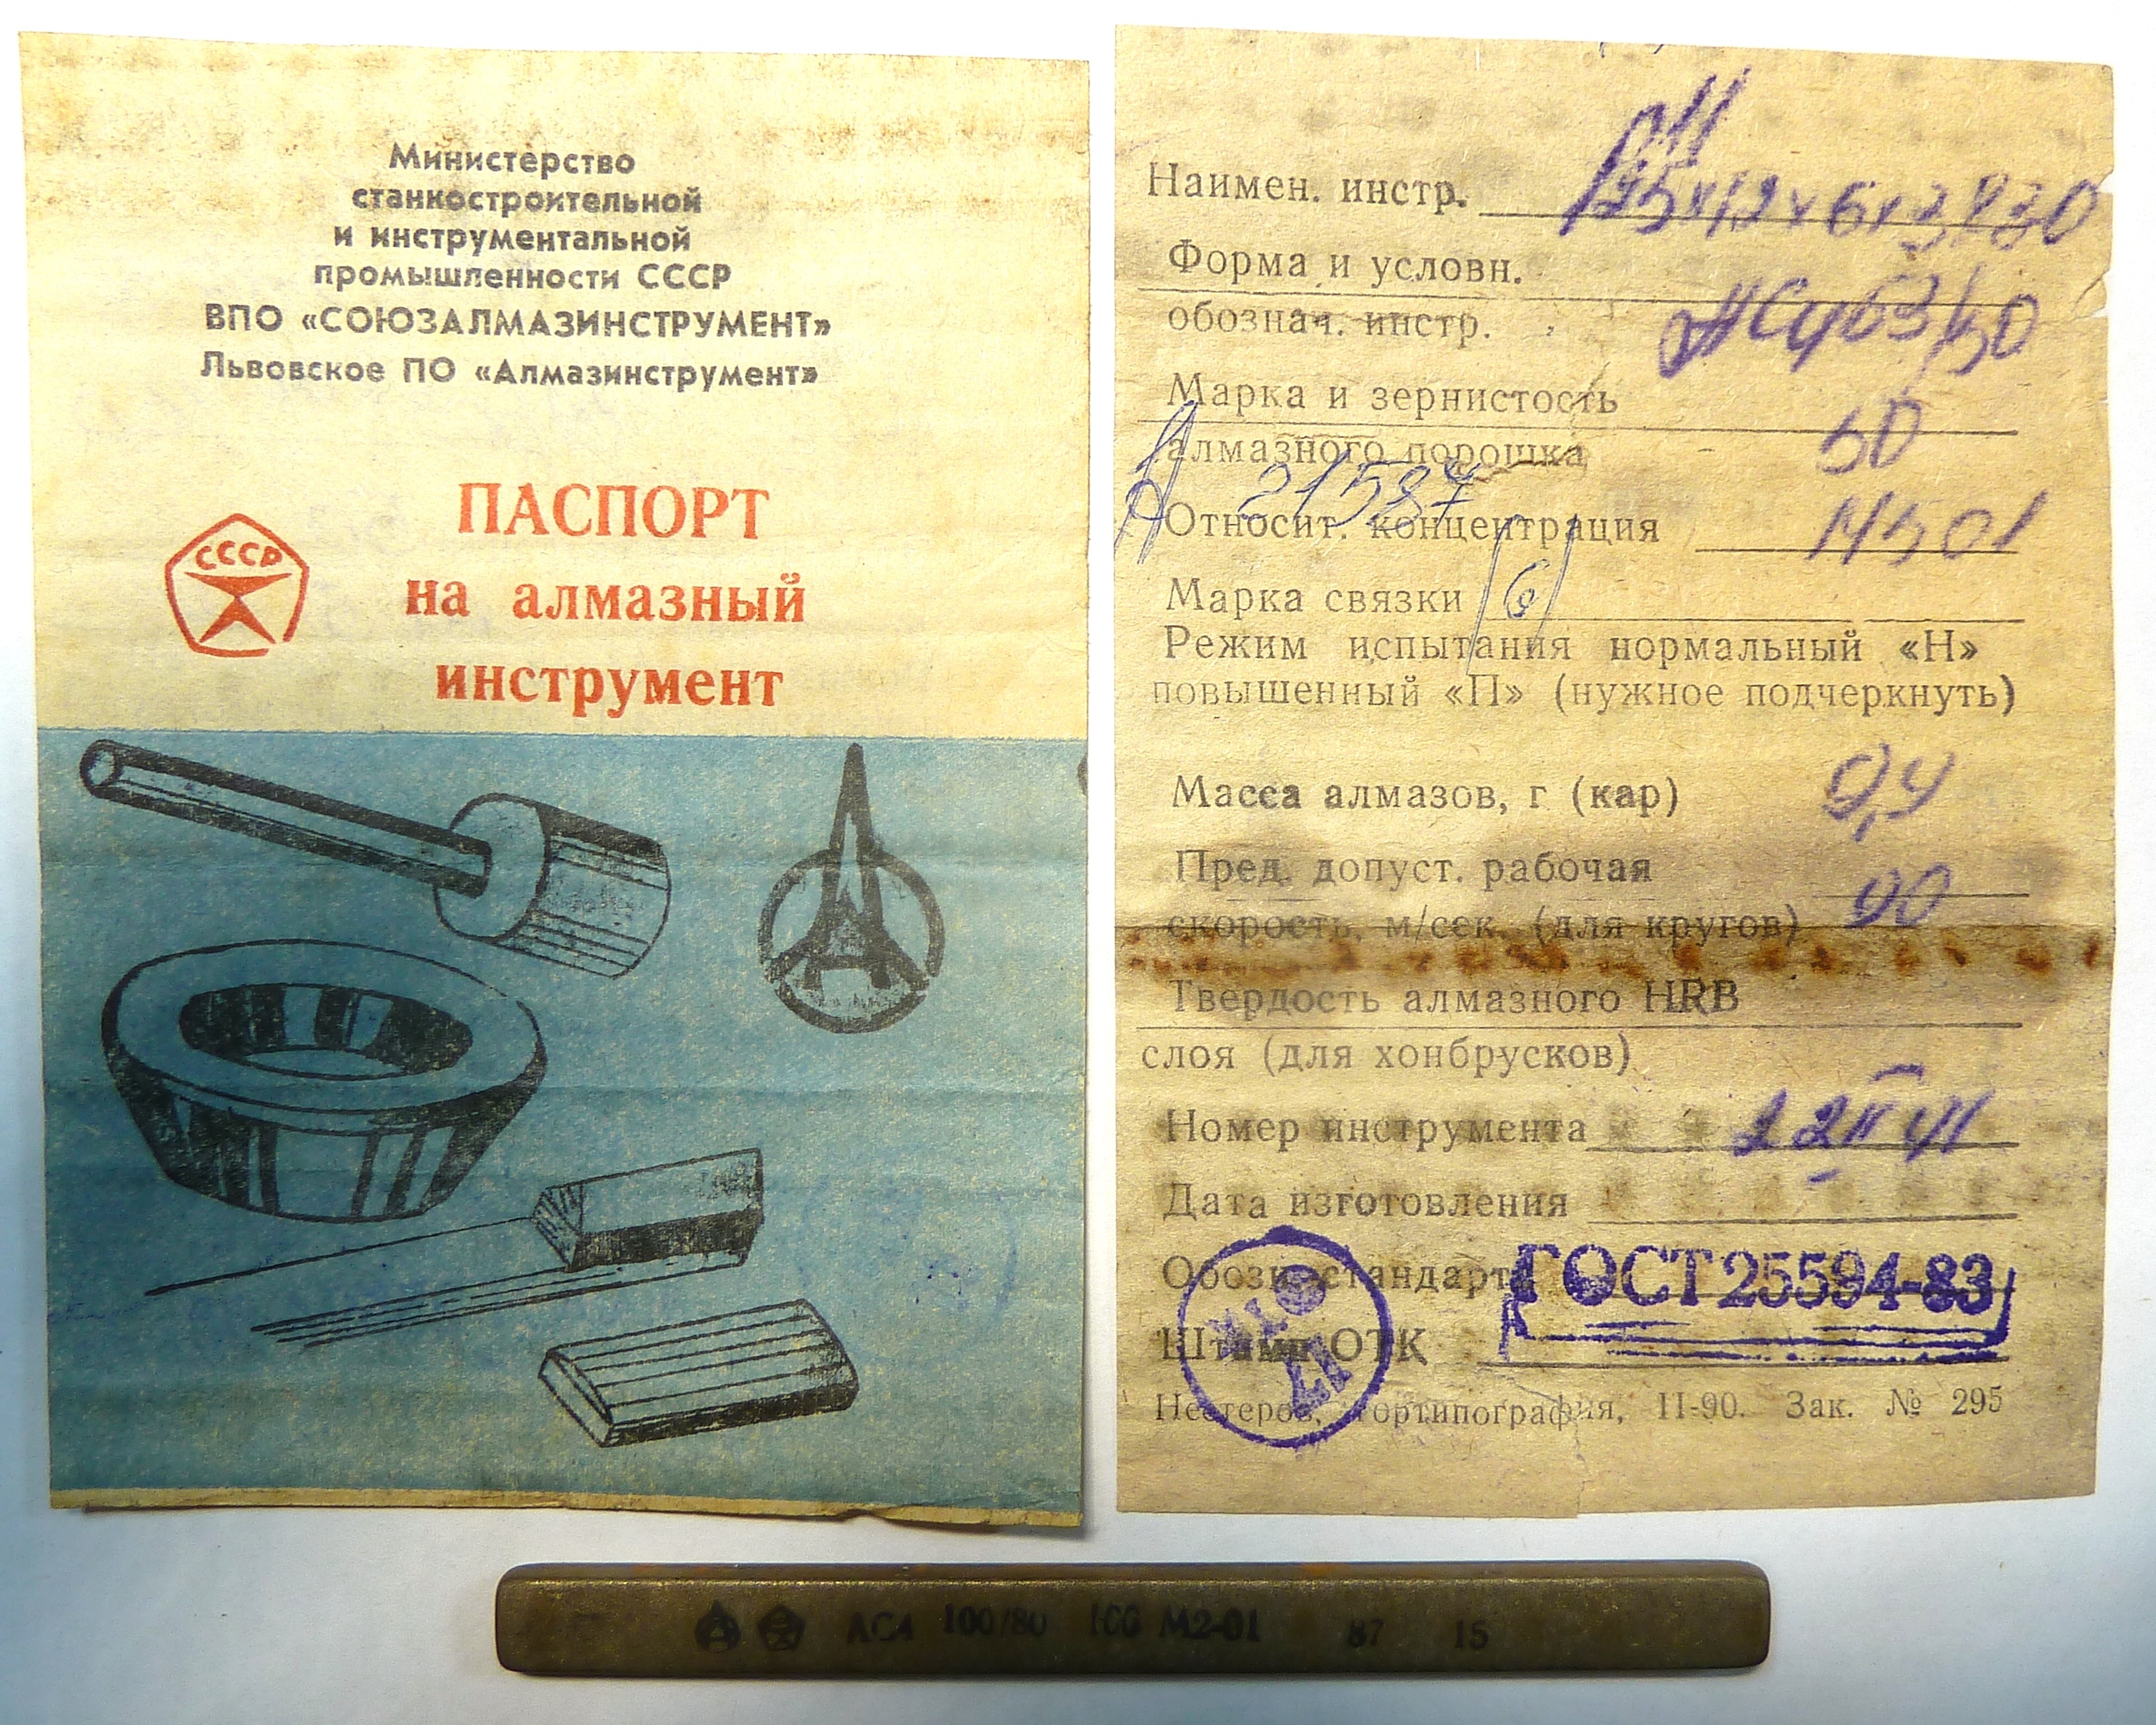 Министерство
станкостроительной
и инструментальной
промышленности СССР
ВПО «СОЮЗАЛМАЗИНСТРУМЕНТ»
Львовское ПО «Алмазинструмент»
СССР
ПАСПОРТ
на алмазный
инструмент
Наимен. инстр.
125х12х6х3х30
Форма и условн.
обознач. инстр.
63/50
Марка и зернистость
50
алмазного порошка
21587
Относит. концентрация
Марка связки
Режим испытания нормальный «Н»
повышенный «П» (нужное подчеркнуть)
Масса алмазов, г (кар)
9,9
Пред. допуст. рабочая
скорость, м/сек. (для кругов)
Твердость алмазного HRB
слоя (для хонбрусков)
Номер инструмента
Дата изготовления
Обозн. стандарта ГОСТ 25594-83
Штамп ОТК
Нестеров, гортипография, II-90. Зак. № 295
АС4 100/80 100 М2-01 87 15